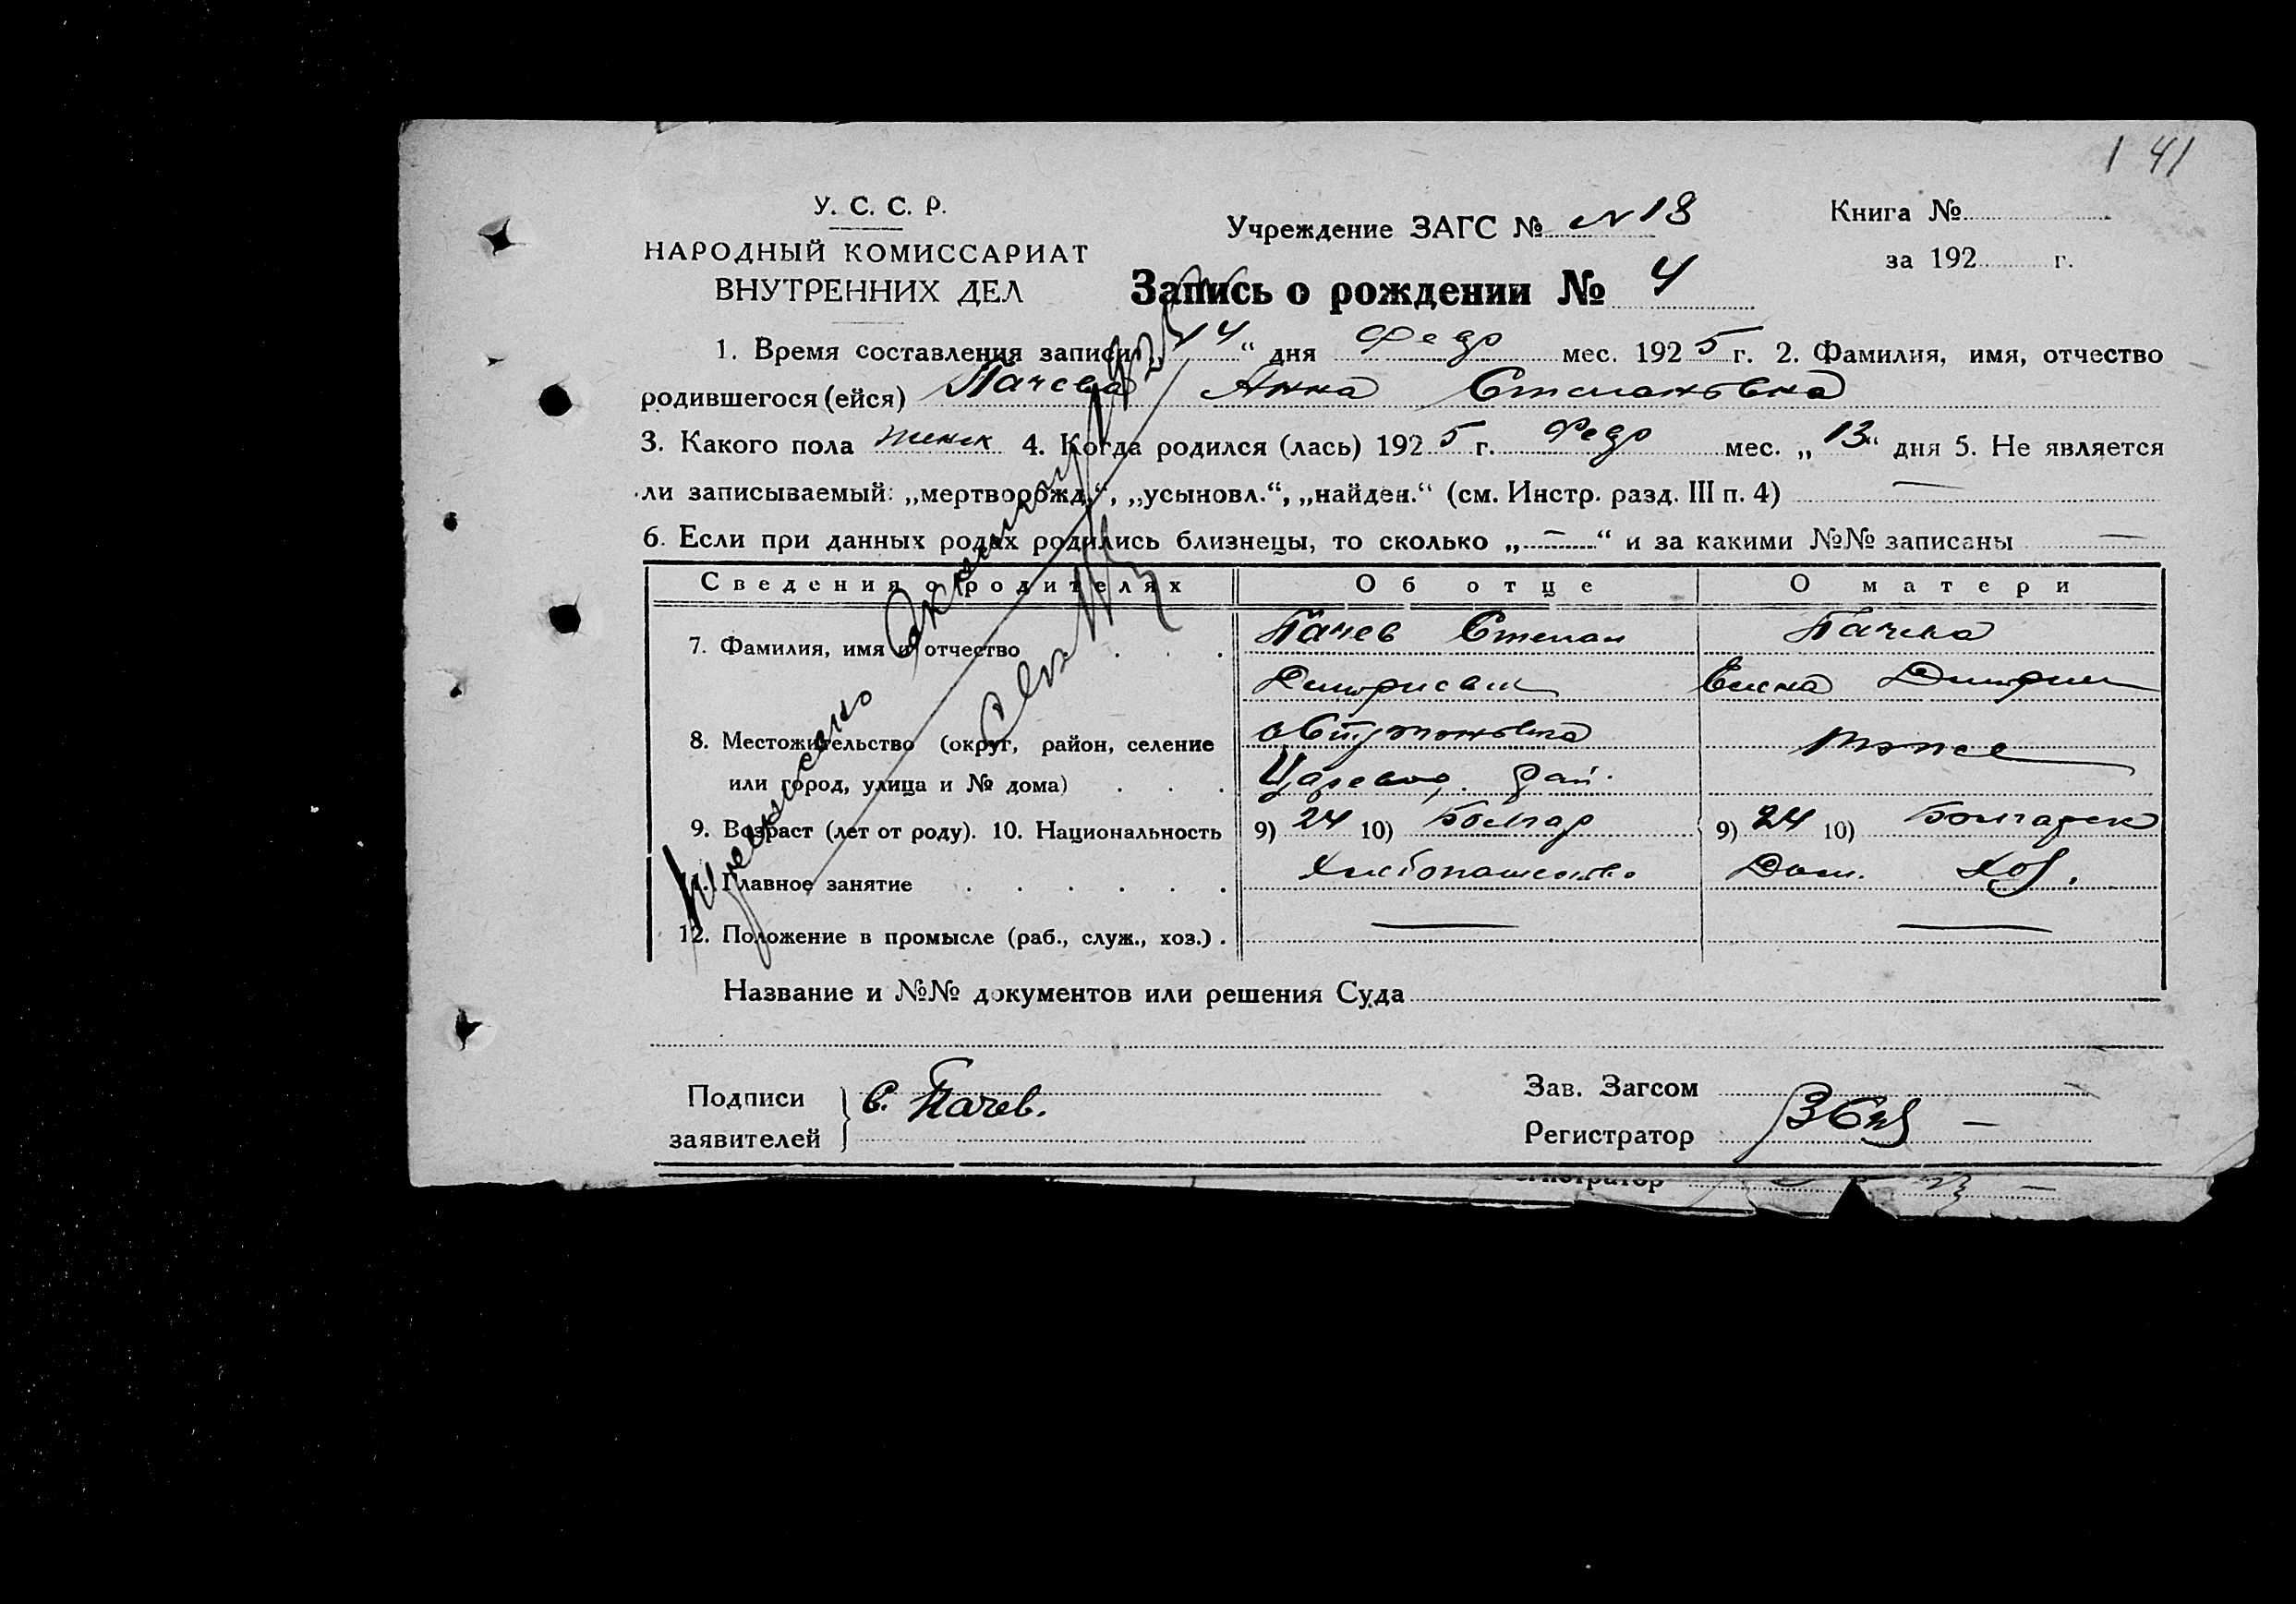 141
У. С. С. Р.
НАРОДНЫЙ КОМИССАРИАТ
ВНУТРЕННИХ ДЕЛ
Учреждение ЗАГС № N 18
Книга №
за 192 г.
Запись о рождении № 4
1. Время составления записи „14“ дня Февр мес. 1925 г. 2. Фамилия, имя, отчество
родившегося (ейся) Пачева Анна Степановна
3. Какого пола женск 4. Когда родился (лась) 1925 г. Февр мес. „13“ дня 5. Не является
ли записываемый: „мертворожд.“, „усыновл.“, „найден.“ (см. Инстр. разд. III п. 4) —
6. Если при данных родах родились близнецы, то сколько „—“ и за какими №№ записаны —
Сведения о родителях Об отце О матери
7. Фамилия, имя и отчество . . . Пачев Степан Пачева
Дмитриевич Елена Дмитрие
8. Местожительство (округ, район, селение тоже
или город, улица и № дома) . . . Царевод. рай.
9. Возраст (лет от роду). 10. Национальность 9) 24 10) Болгар 9) 24 10) Болгарск
11. Главное занятие . . . . . . Хлебопашество Дом. Хоз.
12. Положение в промысле (раб., служ., хоз.) . — —
Название и №№ документов или решения Суда
Подписи заявителей } С. Пачев.
Зав. Загсом
Регистратор
Регистратор